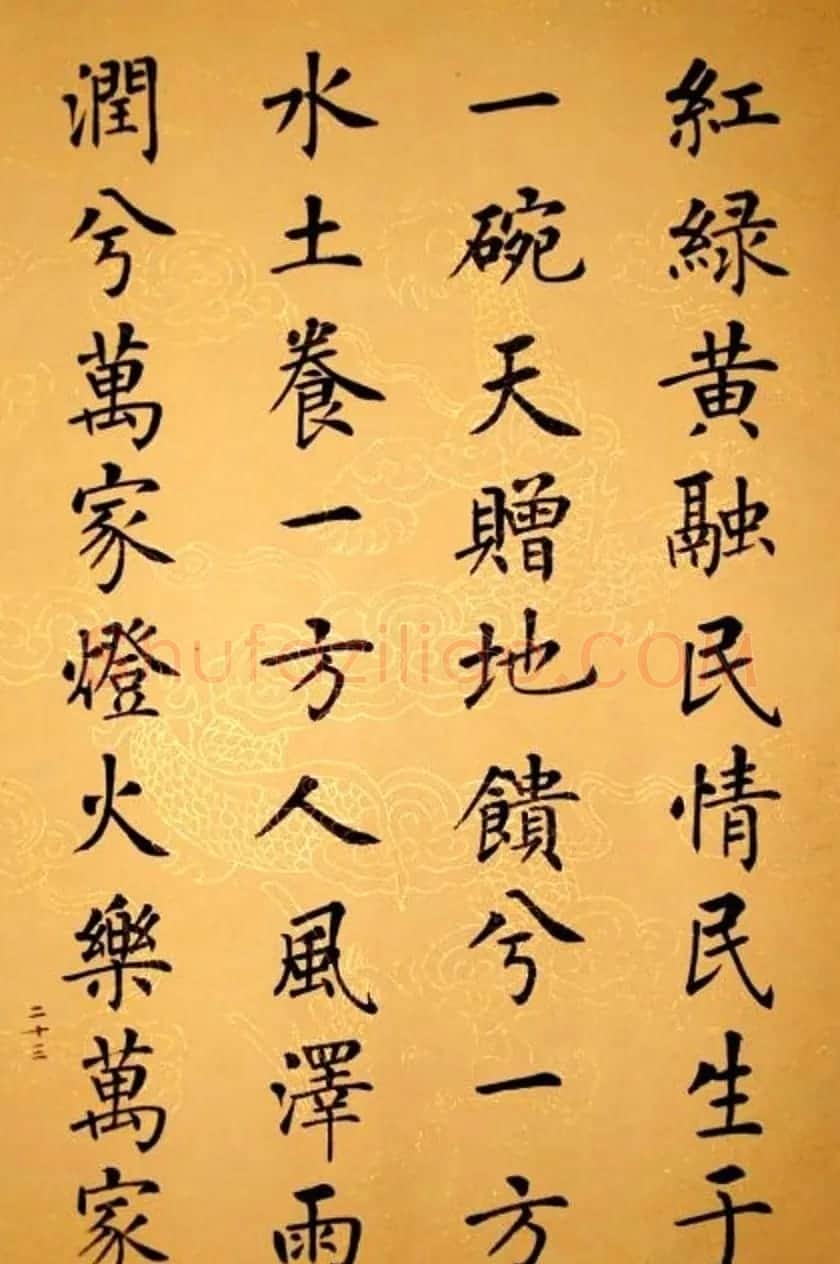 紅綠黄融民情民生于
一碗天贈地饋兮一方
水土養一方人風澤雨
潤兮萬家燈火樂萬家
二十三
shufaziliao.com